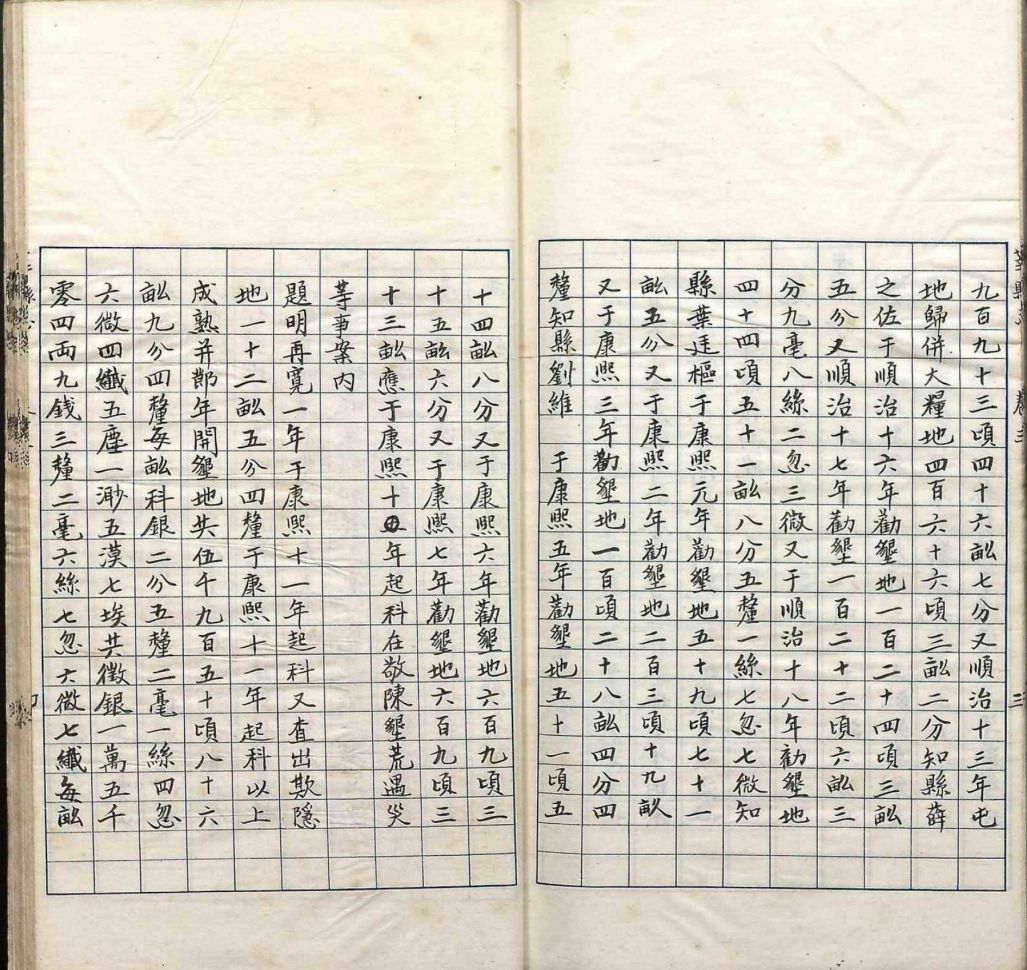 九百九十三頃四十六畝七分又順治十三年屯
地歸併大糧地四百六十六頃三畝二分知縣薛
之佐于順治十六年勸墾地一百二十四頃三畝
五分又順治十七年勸墾一百二十二頃六畝三
分九毫八絲二忽三微又于順治十八年勸墾地
四十四頃五十一畝八分五釐一絲七忽七微知
縣葉廷樞于康熙元年勸墾地五十九頃七十一
畝五分又于康熙二年勸墾地二百三頃十九畝
又于康熙三年勸墾地一百頃二十八畝四分四
釐知縣劉維 于康熙五年勸墾地五十一頃五
十四畝八分又于康熙六年勸墾地六百九頃三
十五畝六分又于康熙七年勸墾地六百九頃三
十三畝應于康熙十四年起科在敬陳墾荒遇災
等事案內
題明再寬一年于康熙十一年起科又查出欺隱
地一十二畝五分四釐于康熙十一年起科以上
成熟并節年開墾地共伍千九百五十頃八十六
畝九分四釐每畝科銀二分五釐二毫一絲四忽
六微四纖五塵一渺五漠七埃共徵銀一萬五千
零四両九錢三釐二毫六絲七忽六微七纖每畝